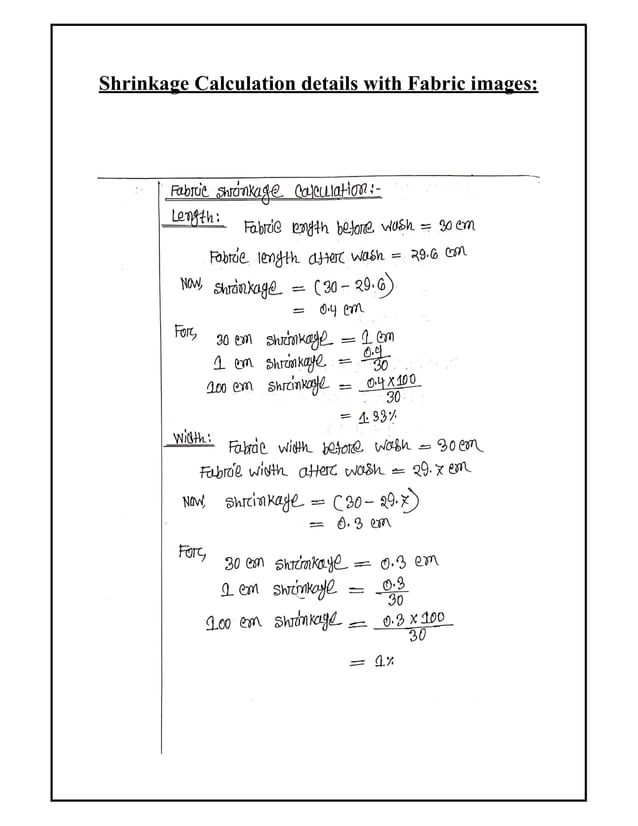 Shrinkage Calculation details with Fabric images:
Fabric shrinkage calculation:-
Length: Fabric length before wash = 30 cm
Fabric length after wash = 29.6 cm
Now, shrinkage = (30 - 29.6)
= 0.4 cm
For, 30 cm shrinkage = 1 cm
1 cm shrinkage = 0.4/30
100 cm shrinkage = 0.4 X 100/30
= 1.33%
Width: Fabric width before wash = 30 cm
Fabric width after wash = 29.7 cm
Now, shrinkage = (30 - 29.7)
= 0.3 cm
For, 30 cm shrinkage = 0.3 cm
1 cm shrinkage = 0.3/30
100 cm shrinkage = 0.3 X 100/30
= 1%